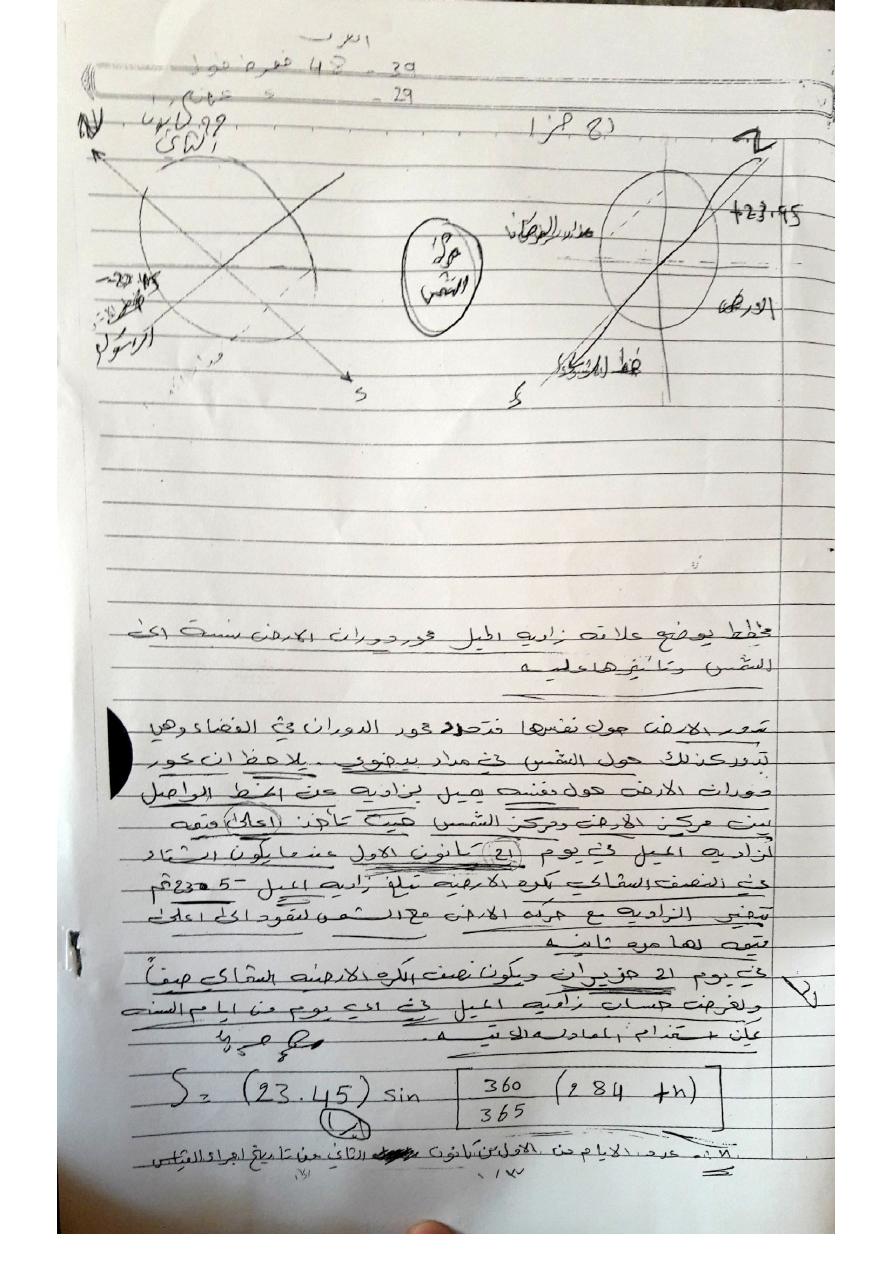 39 - 48 فقرة
29 -
N
+23.45
مركز الشمس
الارض
خط الاستواء
S
S
مخطط يوضح علاقة زاوية الميل محور دوران الارض نسبة الى
الشمس وتأثيرها عليه
تدور الارض حول نفسها محور الدوران في الفضاء وهي
تدور كذلك حول الشمس في مدار بيضوي. يلاحظ ان محور
دوران الارض حول نفسه يميل بزاوية عن الخط الواصل
بين مركز الارض ومركز الشمس حيث تأخذ اعلى قيمة
لزاوية الميل في يوم 21 كانون الاول عندما يكون الشتاء
في النصف الشمالي للكرة الارضية تبلغ زاوية الميل
تتغير الزاوية مع حركة الارض مع الشمس لتعود الى اعلى
قيمة لها مرة ثانية
في يوم 21 حزيران ويكون نصف الكرة الارضية الشمالي صيفاً
ولغرض حساب زاوية الميل في اي يوم من ايام السنة
يمكن استخدام المعادلة الاتية.
S = (23.45) sin [360/365 (284 +n)]
n :- عدد الايام من الاول من كانون الثاني من تاريخ اجراء القياس